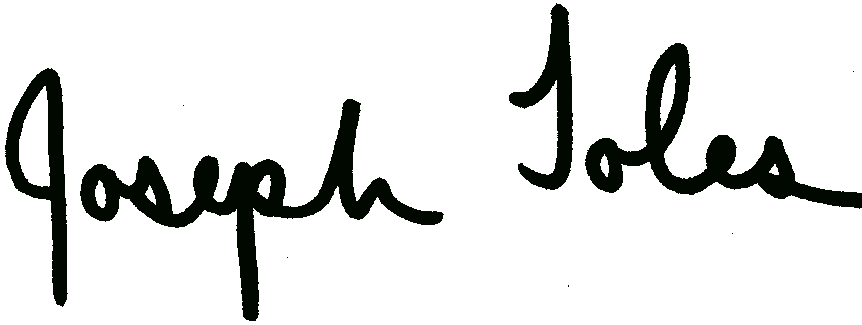 Joseph Toles